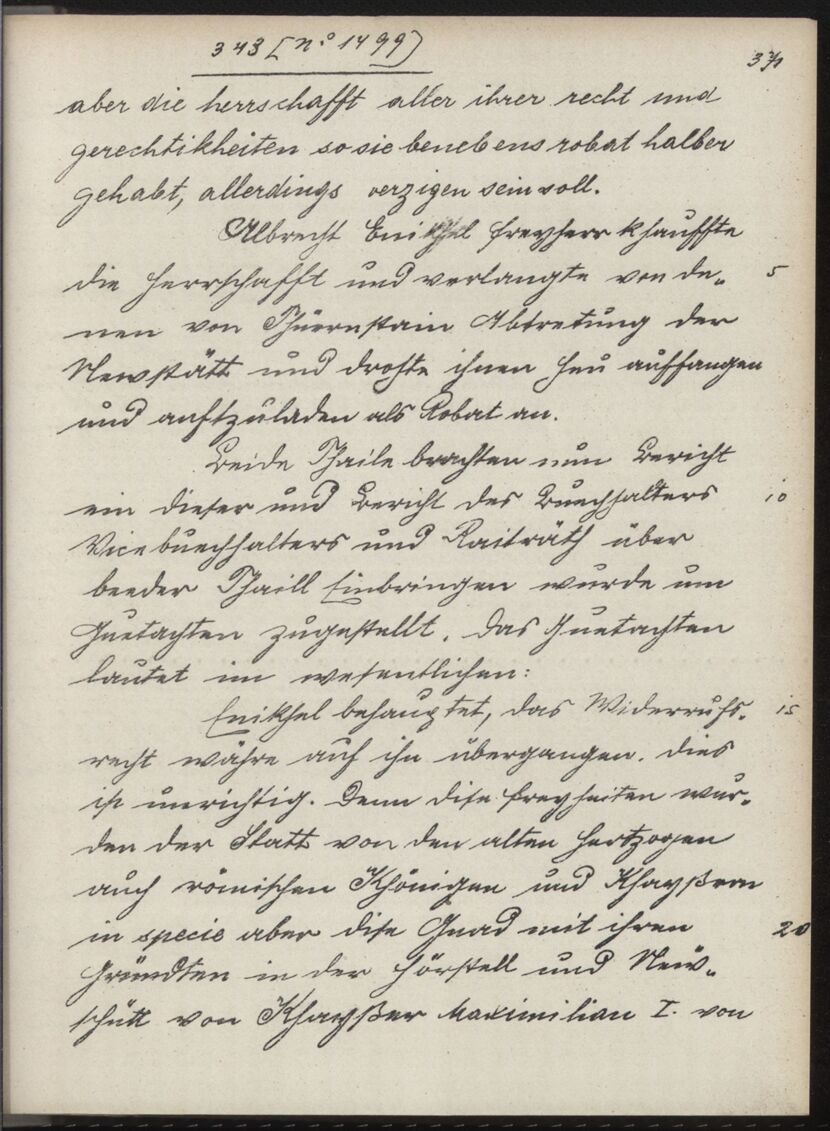 343 [N.o 1499)
371
aber die herrschafft aller ihrer recht und
gerechtikheiten so sie benebens robat halber
gehabt, allerdings verzigen sein soll.
Albrecht Enikhel freyherr khauffte
die Herrschafft und verlangte von de- 5
nen von Thüernstain Abtretung der
Newstätt und drohte ihnen Heu auffangen
und aufzuladen als Robat an.
Beide Thaile brachten nun Bericht
ein dieser und Bericht des Buechhalters 10
Vicebuechhalters und Raiträth über
beeder Thaill Einbringen wurde um
Guetachten zugestellt. Das Guetachten
lautet im wesentlichen:
Enikhel behauptet, das Widerrufs- 15
recht währe auf ihn übergangen. Dies
ist unrichtig. Denn dise freyheiten wur-
den der Statt von den alten Hertzogen
auch römischen Khönigen und Khayßern
in specie aber dise Gnad mit ihren 20
Gründten in der Hörstell und New-
schütt von Khayßer Maximilian I. von